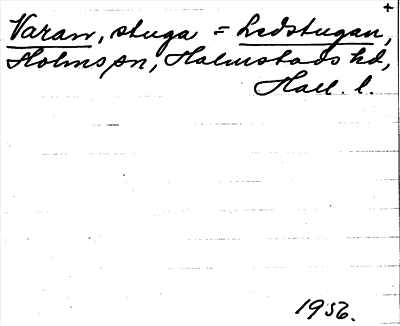 +
Varan, stuga = Ledstugan,
Holms sn, Halmstads hd,
Hall. l.
1956.